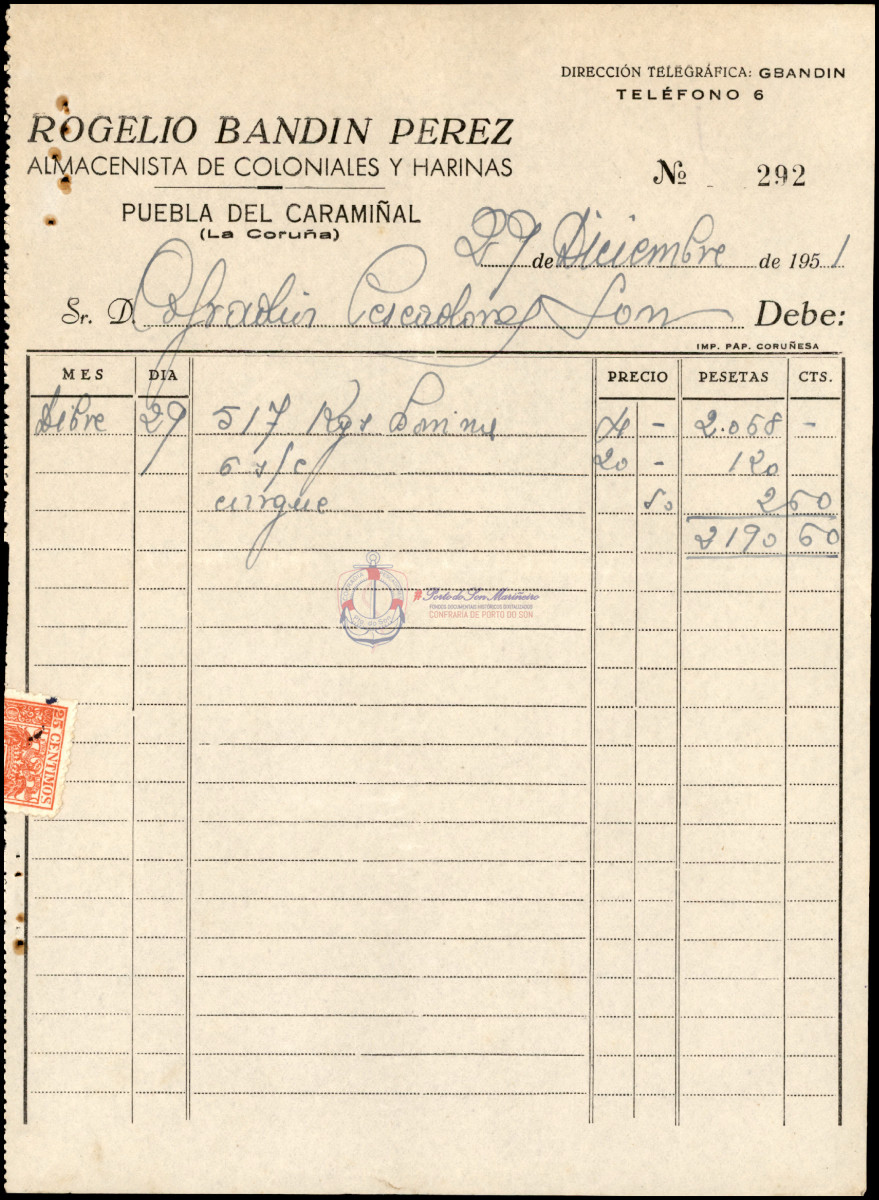 DIRECCIÓN TELEGRÁFICA: GBANDIN
TELÉFONO 6
ROGELIO BANDIN PEREZ
ALMACENISTA DE COLONIALES Y HARINAS
Nº 292
PUEBLA DEL CARAMIÑAL
(La Coruña)
27 de Diciembre de 1951
Sr. D. Cofradia Pescadores Son Debe:
IMP. PAP. CORUÑESA
MES DIA PRECIO PESETAS CTS.
Dibre 29 517 Kgs 4 - 2.068 -
6 s/c 20 - 120
50 2 60
2190 60
Porto do Son Mariñeiro
FONDOS DOCUMENTAIS HISTÓRICOS DIXITALIZADOS
CONFRARÍA DE PORTO DO SON
25 CENTIMOS